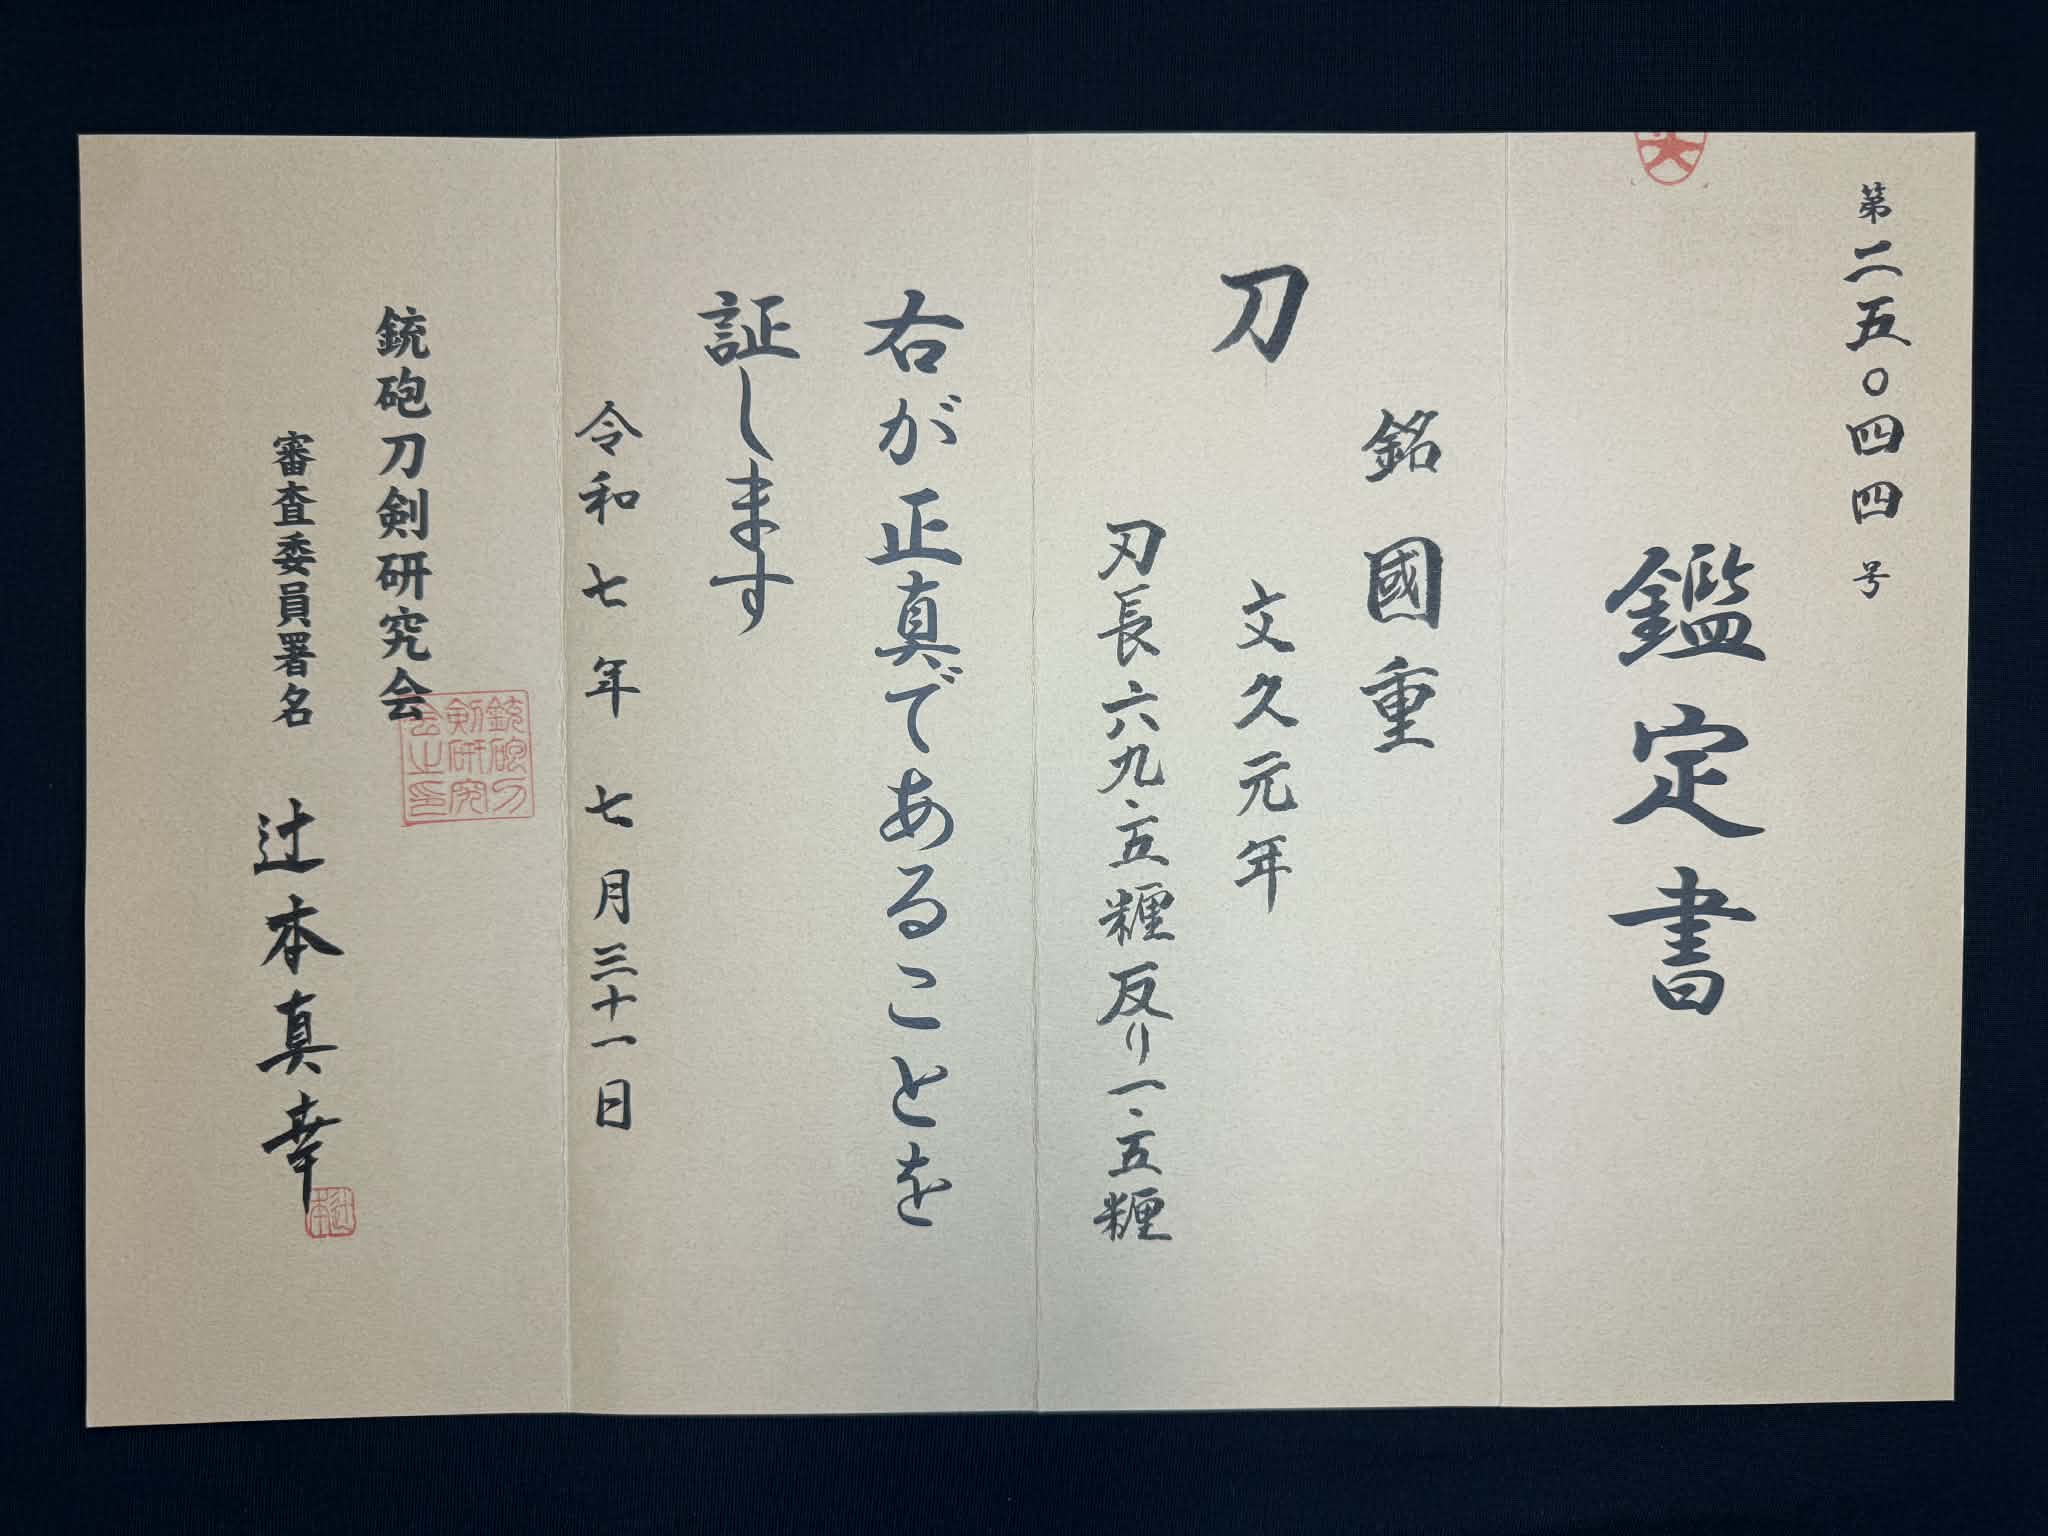 第二五〇四四号
鑑定書
銘 國重
刀
文久元年
刃長六九・五糎 反り一・五糎
右が正真であることを
証します
令和七年 七月三十一日
銃砲刀剣研究会
銃砲刀
剣研究
会之印
審査委員署名 辻本真幸
辻本